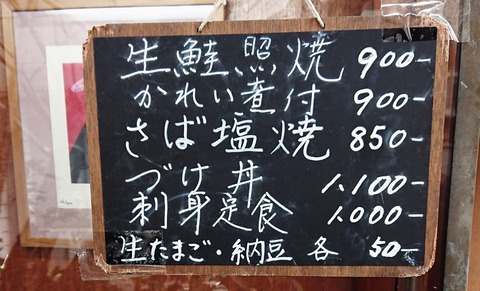 生鮭照焼 900-
かれい煮付 900-
さば塩焼 850-
づけ丼 1,100-
刺身定食 1,000-
生たまご・納豆 各 50-